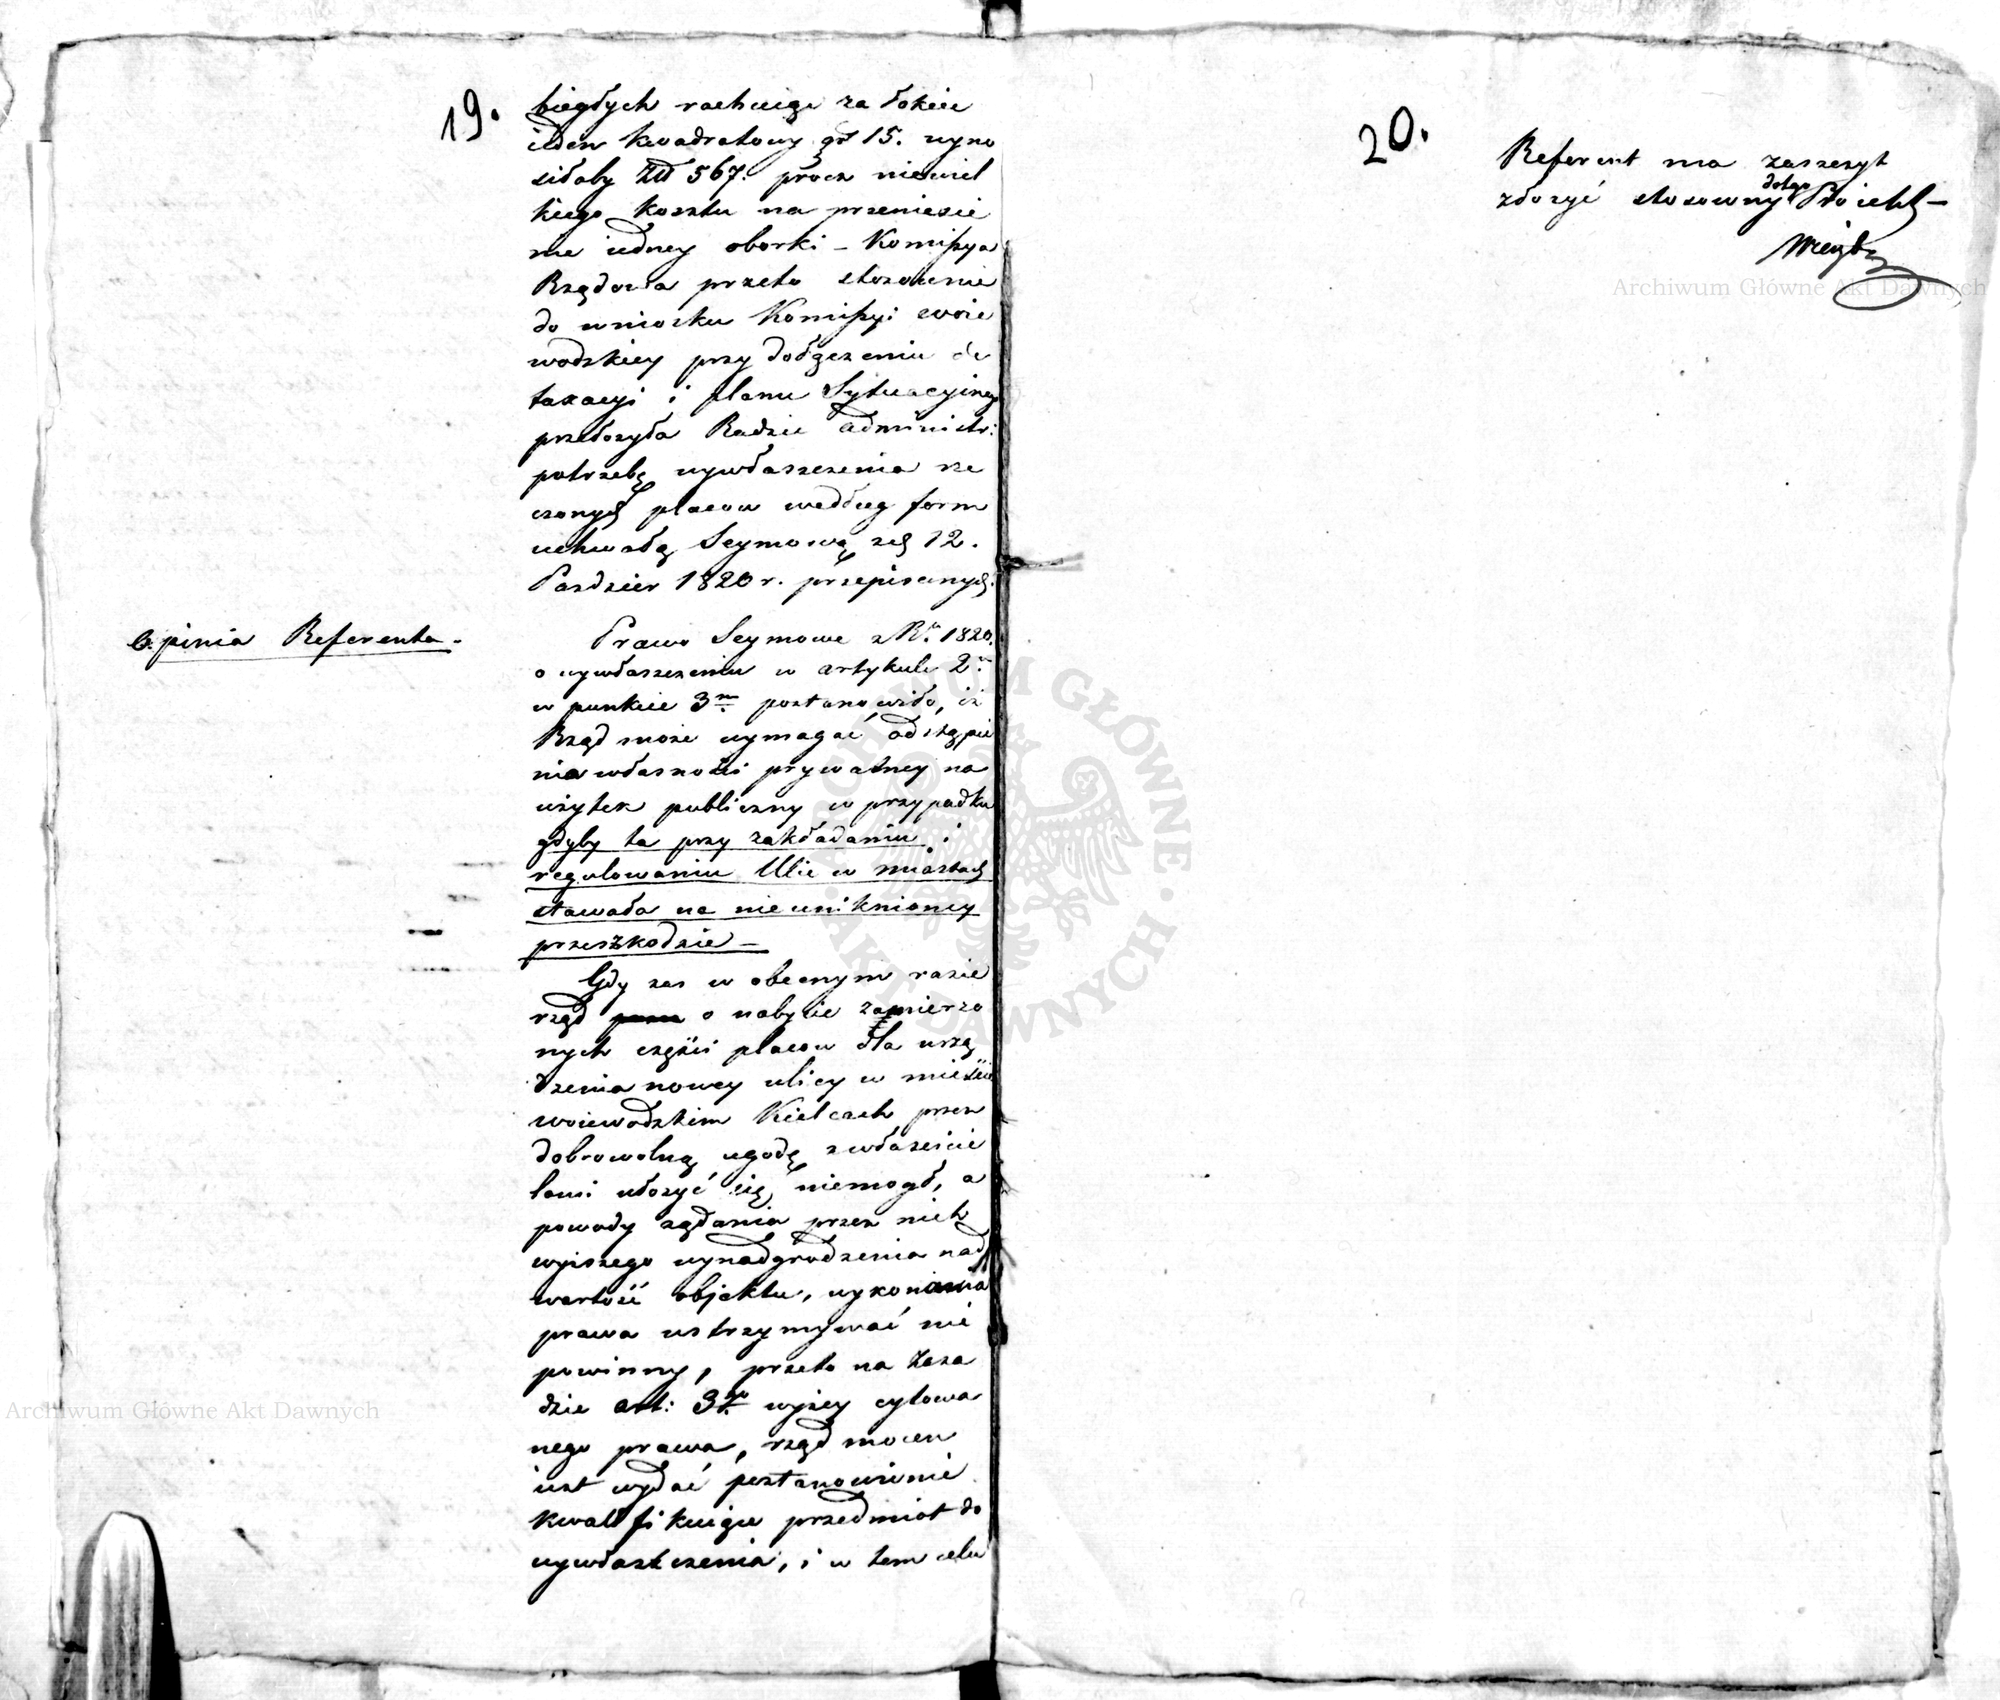 19.
biegłych rachuiąc za łokieć
ieden kwadratowy gr 15. wyno
siłaby Złł 567. prócz niewiel
kiego kosztu na przeniesie
nie iedney oborki – Kommissya
Rządowa przeto stosownie
do wniosku Kommissyi woie
wodzkiey przy dołączeniu de
taxacyi i planu Sytuacyinego
przełożyła Radzie Administr:
potrzebę wywłaszczenia rze
czonych placow według form
uchwałą Seymową z d. 12.
Pazdzier 1820 r. przepisanych.
Opinia Referenta.
Prawo Seymowe z R. 1820.
o wywłaszczeniu w artykule 2.
w punkcie 3m postanowiło, iż
Rząd może wymagać odstąpie
nia własności prywatney na
użytek publiczny w przypadku
gdyby ta przy zakładaniu i
regulowaniu Ulic w miastach
stawała na nieuniknioney
przeszkodzie –
Gdy zas w obecnym razie
rząd o nabycie zamierzo
nych części placow dla urzą
dzenia nowey ulicy w mieście
woiewodzkim Kielcach przez
dobrowolną ugodę z właścicie
lami ułożyć się niemogł, a
powody żądania przez nich
wyższego wynadgrodzenia nad
wartość objektu, wykonania
prawa wstrzymywać nie
powinny, przeto na zasa
dzie art: 3go wyżey cytowa
nego prawa, rząd mocen
iest wydać postanowienie
kwalifikuiące przedmiot do
wywłaszczenia, i w tem celu
20.
Referent ma zaszczyt
złożyć stosowny dotego Proiekt –
Archiwum Główne Akt Dawnych
Archiwum Główne Akt Dawnych
ARCHIWUM GŁÓWNE · AKT DAWNYCH ·